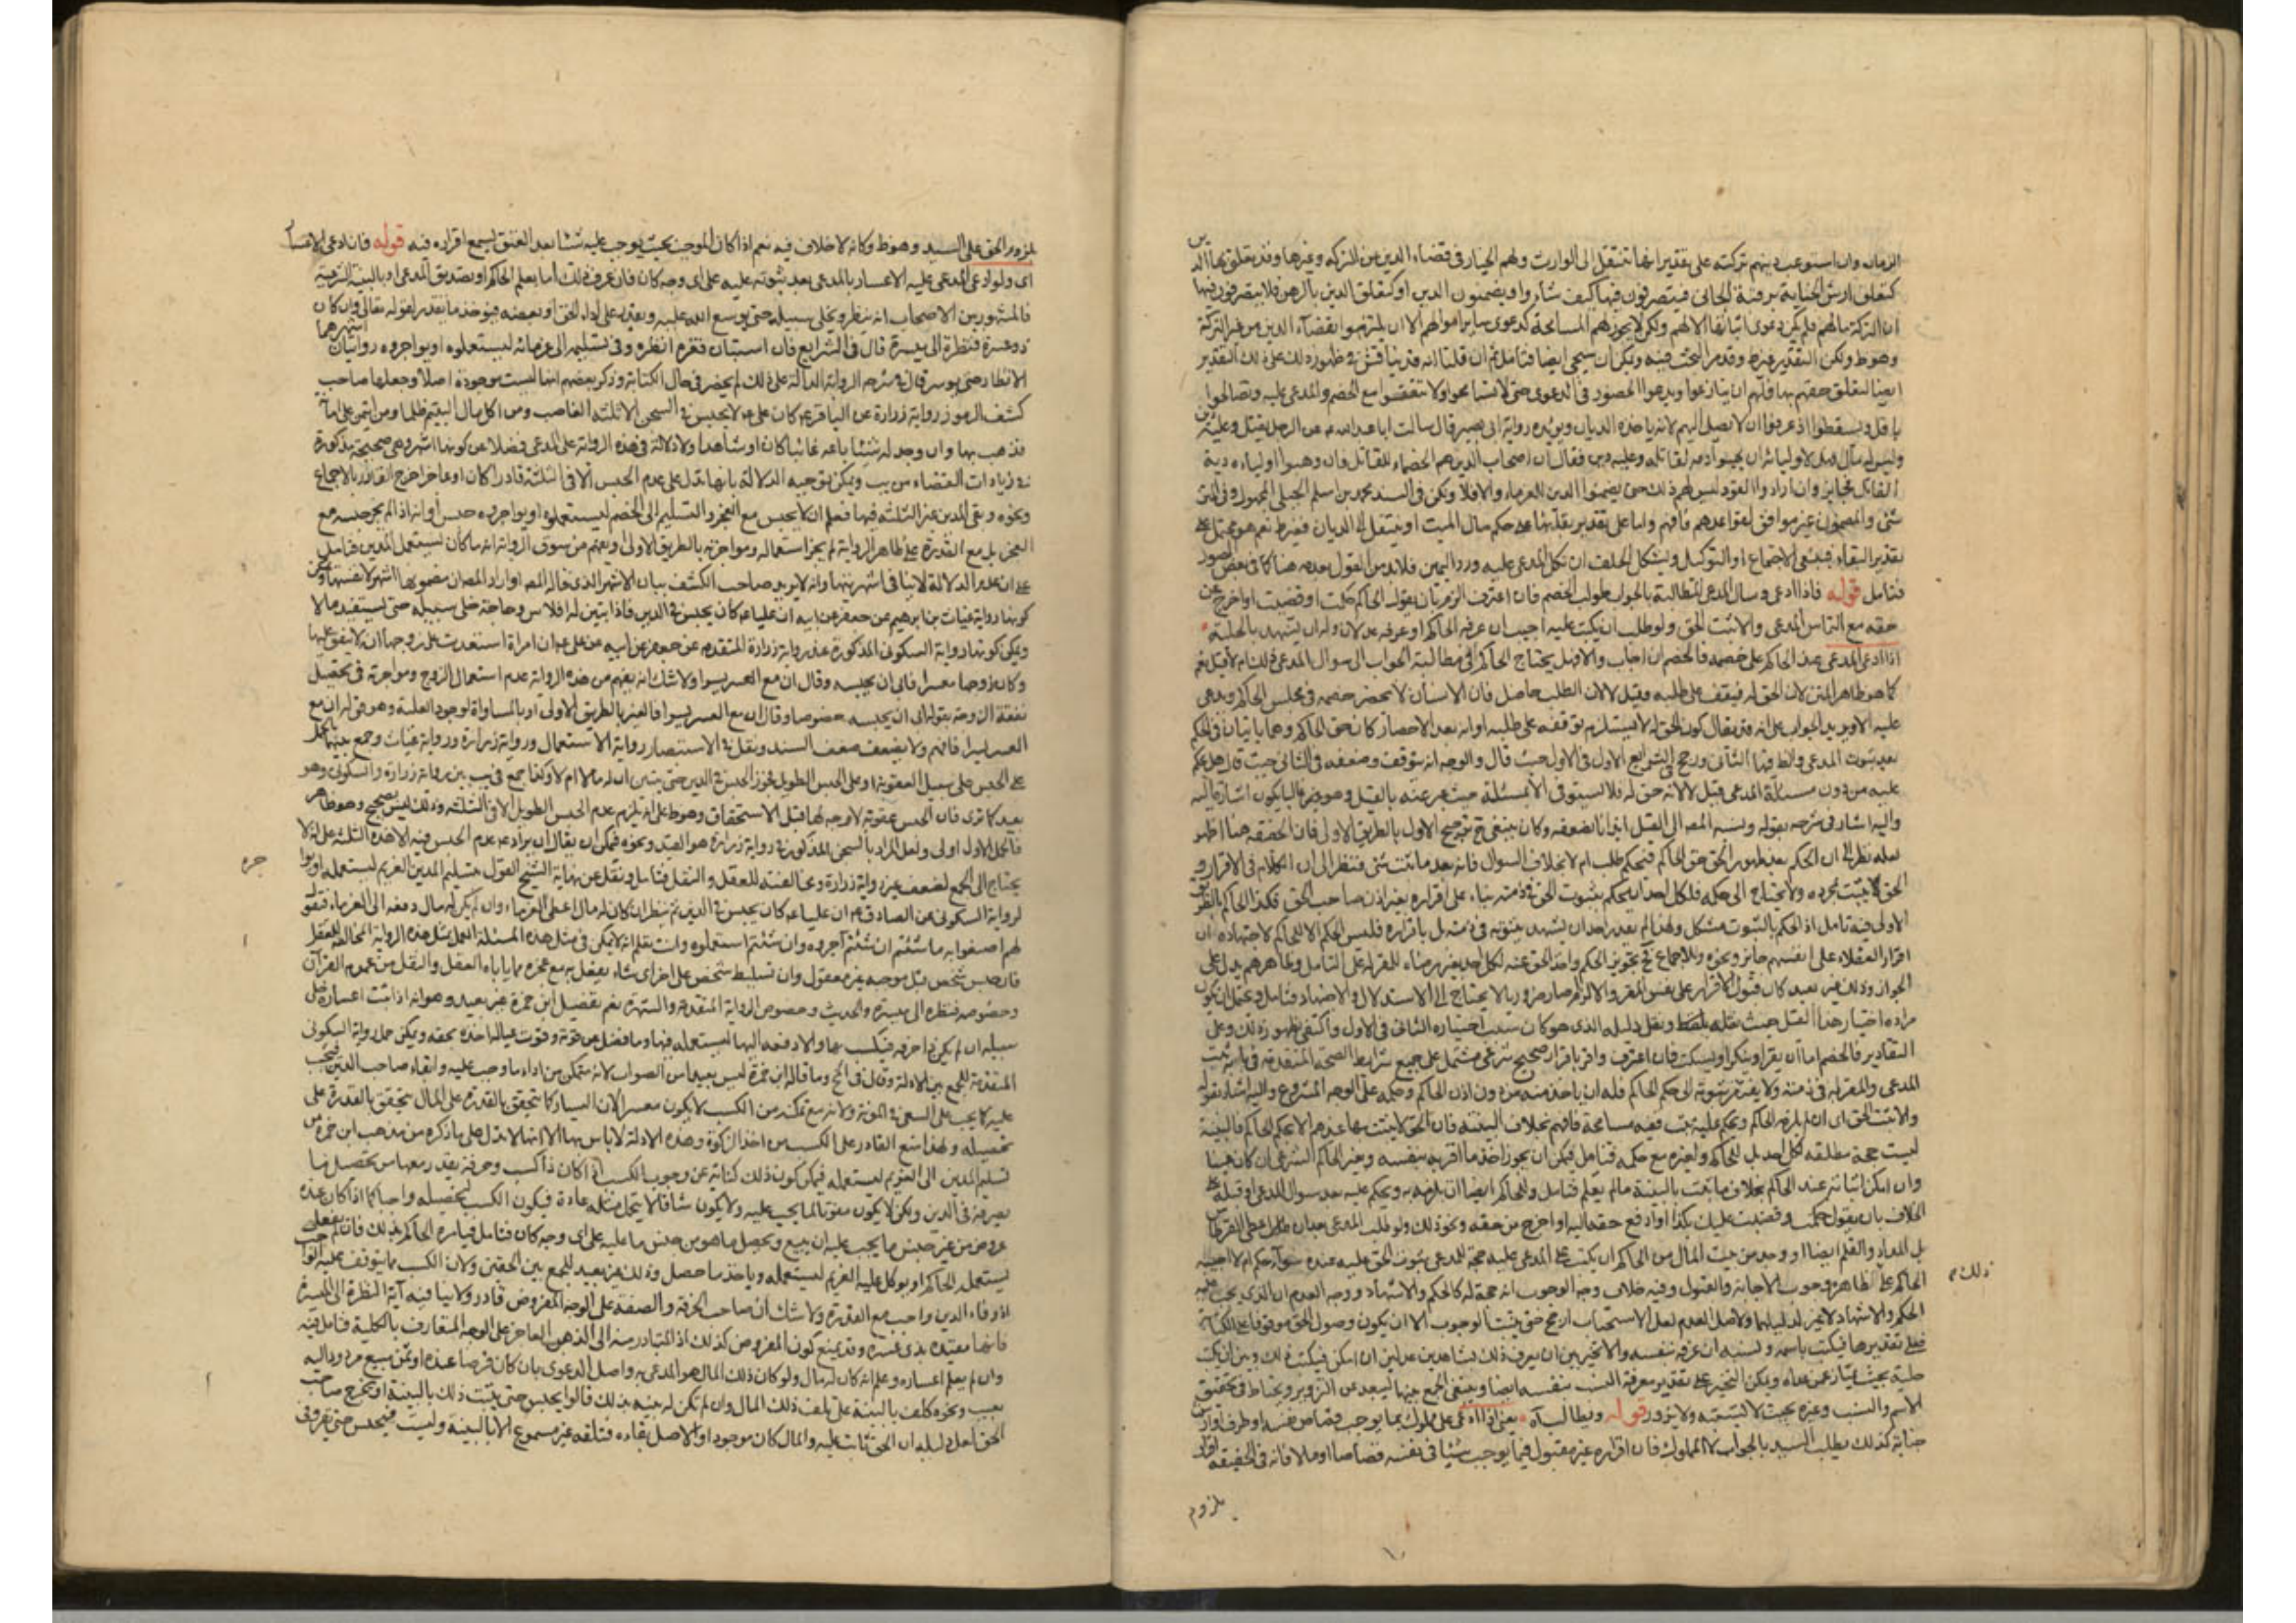 الزمان وان استوعب دينهم تركته على تقدير انها تنتقل الى الوارث ولهم الخيار في قضاء الدين من التركه وغيرها وقد يتعلق بها الدين
كتعلق ارش الجناية برقبة الجاني فيتصرفون فيها كيف شاؤا ويضمنون الدين او كتعلق الدين بالرهن فلا يتصرفون فيها
ان التركة مالهم فلم يكن دعوى اثباتها الا لهم ولكن لا يجوز لهم المسامحة كدعوى ساير اموالهم الا ان يلتزموا بقضاء الدين من غير التركة
وهو ط ولكن التقدير وقد مر البحث فيه ويمكن ان سيجئ ايضا فتامل ثم ان قلنا انه قد يناقش في ظهور ذلك على ذلك التقدير
ايضا لتعلق حقهم بها فلهم ان ينازعوا ويدعوا الحضور في الدعوى حتى لا يتسامحوا ولا يتفقوا مع الخصم والمدعى عليه وتصالحوا
باقل ويسقطوا اذ عرفوا ان لا يصل اليهم لانه ياخذه الديان ويؤيده رواية ابي بصير قال سالت ابا عبد الله ع عن الرجل يقتل وعليه دين
وليس له مال فهل لاوليائه ان يهبوا دمه لقاتله وعليه دين فقال ان اصحاب الدين هم الخصماء للقاتل فان وهبوا اولياءه دية
القاتل فجايز وان ارادوا القود ليس لهم ذلك حتى يضمنوا الدين للغرماء والا فلا ولكن في السند محمد بن اسلم الجبلي المجهول وفي المتن
شئ والمضمون غير موافق لقواعدهم فافهم واما على تقدير بقائها على حكم مال الميت او ينتقل الى الديان نعم هو محتمل على
تقدير البقاء فينبغي الاجتماع او التوكيل ويشكل الحلف ان نكل المدعى عليه ورد اليمين فلابد من القول بعدمه هنا كما في بعض الصور
فتامل قوله فاذا ادعى وسال المدعي المطالبة بالجواب طولب الخصم فان اعترف الزم بان يقول الحاكم حكمت او قضيت او اخرج عن
حقه مع التماس المدعي والا ثبت الحق ولو طلب ان يكتب عليه اجيب ان عرفه الحاكم او عرفه عدلان وله ان يشهد بالحلية
اذا ادعى المدعي عند الحاكم على خصمه فالخصم ان اجاب والا فهل يحتاج الحاكم في مطالبة الجواب الى سوال المدعي ذلك ام لا قيل نعم
كما هو ظاهر المتن لان الحق له فيقف على طلبه وقيل لا لان الطلب حاصل فان الانسان لا يحضر خصمه في مجلس الحاكم ويدعي
عليه الا ويريد الجواب على انه قد يقال كون الحق له لا يستلزم توقفه على طلبه اوانه بعد الاحضار كان حق الحاكم وهما ياتيان في الحكم
بعد ثبوت المدعى والظ فيها الثاني ورجح في الشرايع الاول في الاول حيث قال والوجه انه يتوقف وضعفه في الثاني حيث قال هل يحكم
عليه من دون مسئلة المدعي قيل لا لانه حق له فلا يستوفي الا بمسئلة حيث عبر عنه بالقيل وهو غالبا يكون اشارة اليه
واليه اشار في شرحه بقوله ونسبه المصه الى القيل ايذانا بضعفه وكان ينبغي ح ترجيح الاول بالطريق الاولى فان الحقيقه هنا اظهر
لعله نظر الى ان الحكم بعد ظهور الحق حق الحاكم فيحكم طلب ام لا بخلاف السوال فانه بعد ما ثبت شئ فتنظر الى ان الكلام في الاقرار و
الحق لا يثبت بمجرده ولا يحتاج الى حكمه فلكل احد ان يحكم بثبوت الحق في ذمته بناء على اقراره بغير اذن صاحب الحق فكذا الحاكم بالطريق
الاولى فيه تامل اذ الحكم بالثبوت مشكل ولهذا لم يقدر احد ان يشهد بثبوته في ذمته بل باقراره فليس الحكم الا للحاكم لاجتهاده ان
اقرار العقلاء على انفسهم جايز ونحوه وللاجماع نعم تجويز الحكم واخذ الحق عنه لكل احد بغير رضاء المقر له محل التامل وظاهرهم يدل على
الجواز وذلك غير بعيد كان قبول الاقرار على نفس المقر والالزام صار ضروريا لا يحتاج الى الاستدلال والاجتهاد فتامل ويحتمل ان يكون
مراده اختيار هذا القيل حيث نقله ونقل دليله الذي هو كان سبب اختياره الثاني في الاول واكتفى بظهور ذلك وعلى
التقادير فالخصم اما ان يقر او ينكر او يسكت فان اعترف واقر باقرار صحيح شرعي مشتمل على جميع شرايط الصحة المتقدمة في بابه ثبت
المدعى والمقر له في ذمته ولا يفتقر ثبوته الى حكم الحاكم فله ان ياخذ منه بدون اذن الحاكم وحكمه على الوجه المشروع واليه اشار بقوله
والا ثبت الحق اي ان لم يلزمه الحاكم ويحكم عليه ثبت ففيه مسامحة فافهم بخلاف البينة فان الحق لا يثبت بها عندهم الا بحكم الحاكم فالبينة
ليست حجة مطلقه لكل احد بل للحاكم ولغيره مع حكمه فتامل فيمكن ان يجوز اخذ ما اقر به بنفسه وبغير الحاكم الشرعي ان كان عينا
وان امكن اثباته عند الحاكم بخلاف ما يثبت بالبينة مالم يعلم فتامل وللحاكم ايضا ان يلزمه به ويحكم عليه بعد سوال المدعي او قبله على
الخلاف بان يقول حكمت وقضيت عليك بكذا او ادفع حقه اليه او اخرج من حقه ونحو ذلك ولو طلب المدعي بعد ان اعطى القرطاس
بل المداد والقلم ايضا او وجد من بيت المال من الحاكم ان يكتب على المدعى عليه حجة للمدعي بثبوت الحق عليه عنده سواء حكم ام لا اجيبه
الحاكم على الظاهر وجوب الاجابة والقبول وفيه خلاف وجه الوجوب انه حجة له كالحكم والاشهاد ووجه العدم ان الذي يجب عليه
الحكم والاشهاد لا غير لدليلهما ولاصل العدم لعل الاستحباب ارجح حتى يثبت الوجوب الا ان يكون وصول الحق موقوفا على الكتابة
فعلى تقديرها فيكتب باسمه ونسبه ان عرفه بنفسه والا تخير بين ان يعرف ذلك بشاهدين عدلين ان امكن فيكتب ذلك وبين ان يكتب
حليته بحيث يمتاز عمن عداه ويمكن التخيير على تقدير معرفة النسب بنفسه ايضا وينبغي الجمع بينها ليبعد عن التزوير ويحتاط في تحقيق
الاسم والنسب وغيره بحيث لا يشتبه ولا يزور قوله ويطالب السيد يعني اذا ادعى على مملوك بما يوجب قصاص نفسه او طرفه او ارش
جناية كذلك يطلب السيد بالجواب لا المملوك فان اقراره غير مقبول فيما يوجب شيئا في نفسه قصاصا او مالا فانه في الحقيقه اقرار
ذلك م
بلزوم
بلزوم الحق على السيد وهو ظ وكانه لا خلاف فيه نعم اذا كان الموجب بحيث يوجب عليه شئا بعد العتق يسمع اقراره فيه قوله فان ادعى الاعسار
اي ولو ادعى المدعى عليه الاعسار بالمدعى بعد ثبوته عليه على اي وجه كان فان عرف ذلك اما بعلم الحاكم او بتصديق المدعي او بالبينة الشرعية
فالمشهور بين الاصحاب انه ينظر ويخلى سبيله حتى يوسع الله عليه ويقدر على اداء الحق او بعضه فيؤخذ ما يقدر لقوله تعالى وان كان
ذو عسرة فنظرة الى ميسرة قال في الشرايع فان استبان فقره انظره وفي تسليمه الى غرمائه ليستعملوه او يواجروه روايتان اشهرهما
الانظار حتى يوسر قال في شرحه الرواية الدالة على ذلك لم يحضر في حال الكتابة وذكر بعضهم انها ليست موجودة اصلا وجعلها صاحب
كشف الرموز رواية زرارة عن الباقر ع كان علي ع لا يحبس في السجن الا ثلثة الغاصب ومن اكل مال اليتيم ظلما ومن ائتمن على امانة
فذهب بها وان وجد له شيئا باعه غائبا كان او شاهدا ولا دلالة في هذه الرواية على المدعى فضلا عن كونها اشهر وهي صحيحة مذكورة
في زيادات القضاء من يب ويمكن توجيه الدلالة بانها تدل على عدم الحبس الا في الثلثة قادرا كان او عاجزا خرج القادر بالاجماع
ونحوه وبقي المدين غير الثلثه فيها فعلم ان لا يحبس مع العجز والتسليم الى الخصم ليستعملوه او يواجروه حبس اوانه اذا لم يجز حبسه مع
العجز بل مع القدرة على ظاهر الرواية لم يجز استعماله ومواجرته بالطريق الاولى او يفهم من سوق الرواية انه ما كان يستعمل المدين فتامل
على ان عدم الدلالة لا ينافي اشهريتها وانه لا يريد صاحب الكشف بيان الاشهر الذي قاله المصه او اراد المصه ان مضمونها اشهر لا نفسها ويمكن
كونها رواية غياث بن ابرهيم عن جعفر عن ابيه ان عليا ع كان يحبس في الدين فاذا تبين له افلاس وحاجة خلى سبيله حتى يستفيد مالا
ويمكن كونها رواية السكوني المذكورة عند رواية زرارة المتقدمه عن جعفر عن ابيه عن علي ع ان امراة استعدت على زوجها انه لا ينفق عليها
وكان زوجها معسرا فابى ان يحبسه وقال ان مع العسر يسرا ولا شك انه يفهم من هذه الرواية عدم استعمال الزوج ومواجرته في تحصيل
نفقة الزوجة بقوله ابى ان يحبسه خصوصا وقال ان مع العسر يسرا فالغير بالطريق الاولى او بالمساواة لوجود العلة وهو قوله ان مع
العسر يسرا فافهم ولا يضعف ضعف السند ونقل في الاستبصار رواية الاستعمال ورواية زرارة ورواية غياث وجمع بينها بالحمل
على الحبس على سبيل العقوبة او على الحبس الطويل فجوز الحبس في الدين حتى يتبين ان له مالا ام لا وكذا جمع في يب بين رواية زرارة والسكوني وهو
بعيد كما ترى فان الحبس عقوبة لا وجه لها قبل الاستحقاق وهو ظ على انه يلزم عدم الحبس الطويل الا في الثلثه وذلك ليس بصحيح وهو ظاهر
فالحمل الاول اولى ولعل المراد بالسجن المذكور في رواية زرارة هو القيد ونحوه فيمكن ان يقال ان يراد به عدم الحبس فيه الا هذه الثلث على انه لا
يحتاج الى الجمع لضعف غير رواية زرارة ومخالفته للعقل والنقل فتامل ونقل عن نهاية الشيخ القول بتسليم المدين الغريم ليستعمله او يواجره
لرواية السكوني عن الصادق ع ان عليا ع كان يحبس في الدين ثم ينظر ان كان له مال اعطى الغرماء وان لم يكن له مال دفعه الى الغرماء فيقول
لهم اصنعوا به ما شئتم ان شئتم آجروه وان شئتم استعملوه وانت تعلم انه لا يمكن في مثل هذه المسئلة العمل بمثل هذه الرواية المخالفة للعقل
فان حبس شخص قبل موجبه غير معقول وان تسليط شخص على اخر اي شاء يفعل به مع عجزه مما ياباه العقل والنقل من عموم القرآن
وخصوصه فنظرة الى ميسرة والحديث وخصوص الرواية المتقدمة والشهرة نعم تفصيل ابن حمزة غير بعيد وهو انه اذا ثبت اعساره خلى
سبيله ان لم يكن ذا حرفه فيكسب بها والا دفعه اليها ليستعمله فيها وما فضل عن قوته وقوت عياله اخذه بحقه ويمكن حمل رواية السكوني
المتقدمة للجمع بين الادلة وقال في لح وما قاله ابن حمزة ليس بعيدا من الصواب لانه متمكن من اداء ما وجب عليه وايفاء صاحب الدين فيجب
عليه كما يجب عليه السعي في المؤنة ولانه مع تمكنه من الكسب لا يكون معسرا لان اليسار كما يتحقق بالقدرة على المال يتحقق بالقدرة على
تحصيله ولهذا منع القادر على الكسب من اخذ الزكوة وهذه الادلة لا باس بها الا انها لا تدل على ما ذكره من مذهب ابن حمزة من
تسليم المدين الى الغريم ليستعمله فيمكن كون ذلك كناية عن وجوب الكسب اذا كان ذا كسب وحرفة يقدر معها من تحصيل ما
يصرفه في الدين ويمكن لا يكون مفوتا لما يجب عليه ولا يكون شاقا لا يتحمل مثله عادة فيكون الكسب لتحصيله واجبا كما اذا كان عنده
عروض من غير جنس ما يجب عليه ان يبيع ويحصل ما هو من جنس ما عليه على اي وجه كان فتامل فيامره الحاكم بذلك فان لم يفعل
يستعمله الحاكم او يوكل عليه الغريم ليستعمله وياخذ ما حصل وذلك غير بعيد للجمع بين الحقين ولان الكسب مما يتوقف عليه الواجب
اذ وفاء الدين واجب مع القدرة ولا شك ان صاحب الحرفة والصنعة على الوجه المفروض قادر ولا ينافيه آية النظرة الى الميسرة
فانها مقيده بذي عسرة وقد يمنع كون المفروض كذلك اذ المتبادر منه الى الذهن العاجز على الوجه المتعارف بالكلية فتامل فيه
وان لم يعلم اعساره وعلم انه كان له مال ولو كان ذلك المال هو المدعى به واصل الدعوى بان كان قرضا عنده او ثمن مبيع مردود اليه
بعيب ونحوه كلف بالبينة على تلف ذلك المال وان لم تكن له بينه بذلك قالوا يحبس حتى يثبت ذلك بالبينة او يخرج صاحب
الحق لعل دليله ان الحق ثابت عليه والمال كان موجودا والاصل بقاءه فتلفه غير مسموع الا بالبينة وليست فيحبس حتى يعرف في
جره